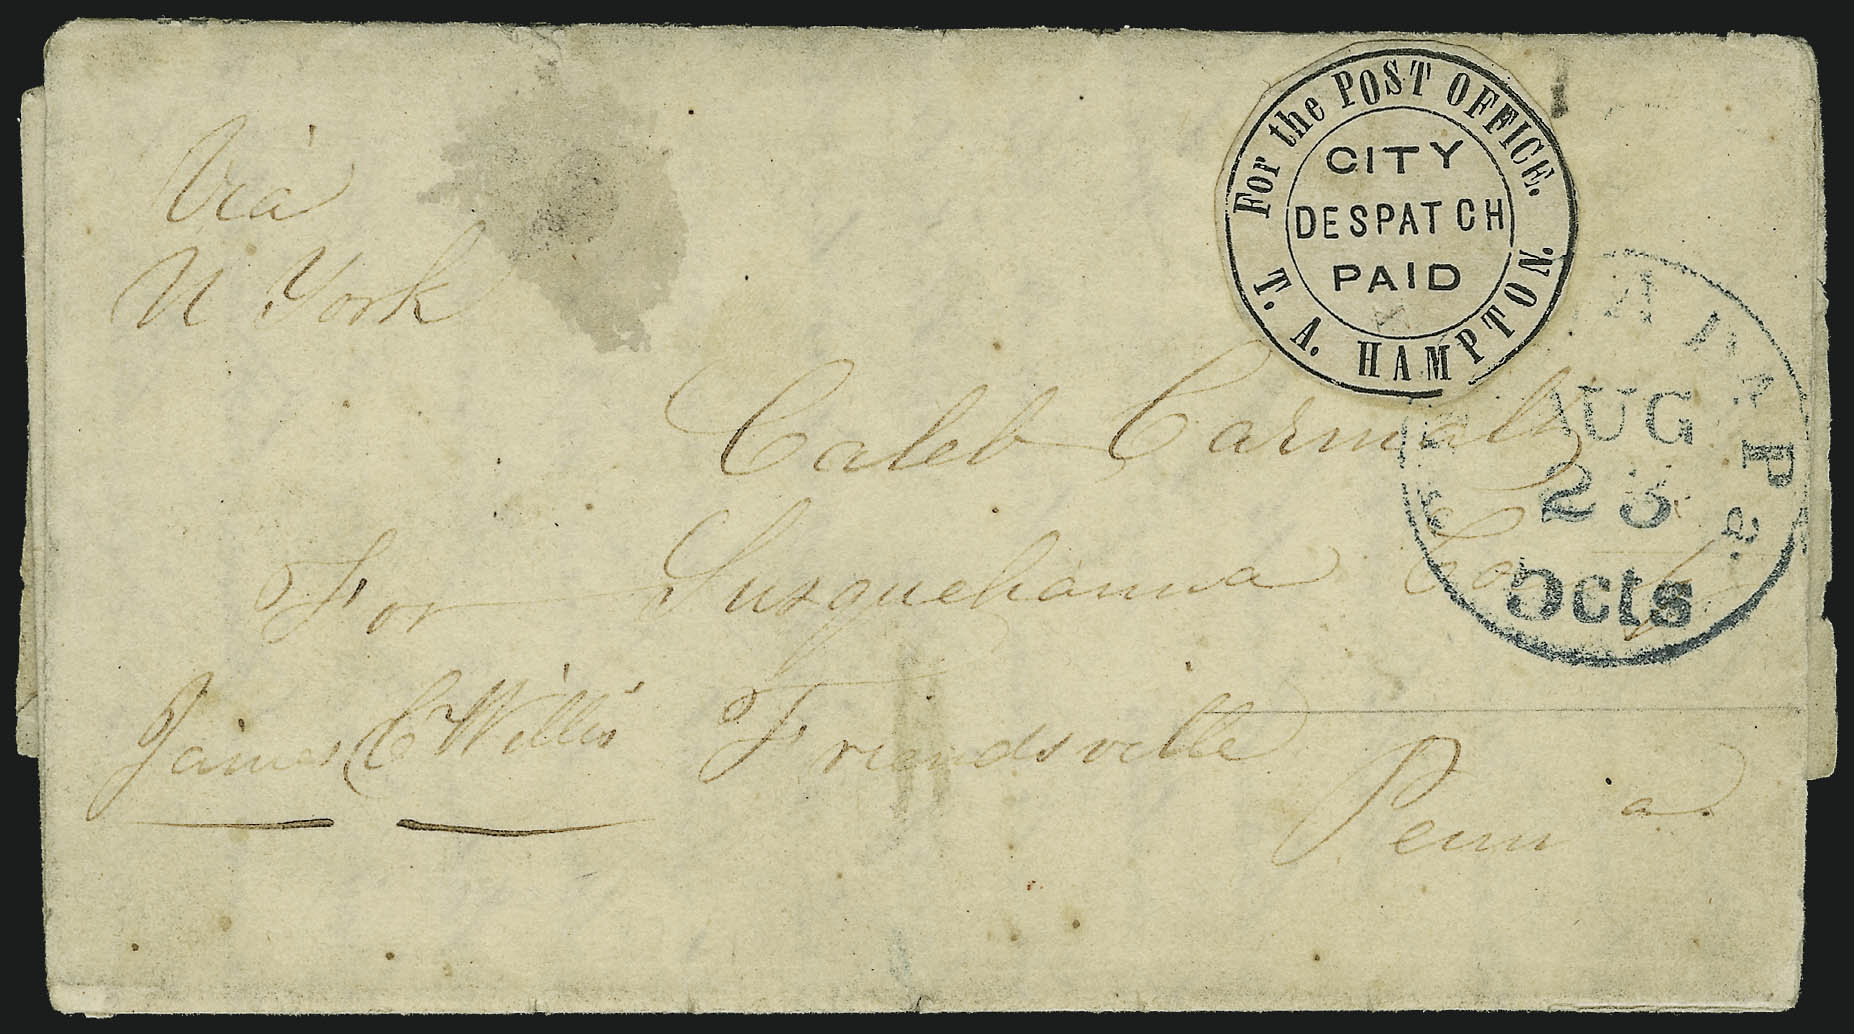 Via
N York
For the POST OFFICE.
CITY
DESPATCH
PAID
T. A. HAMPTON.
AUG
23
5cts
Pa.
Caleb Carmalt
For Susquehanna Co
James C Willis Friendsville
Penna